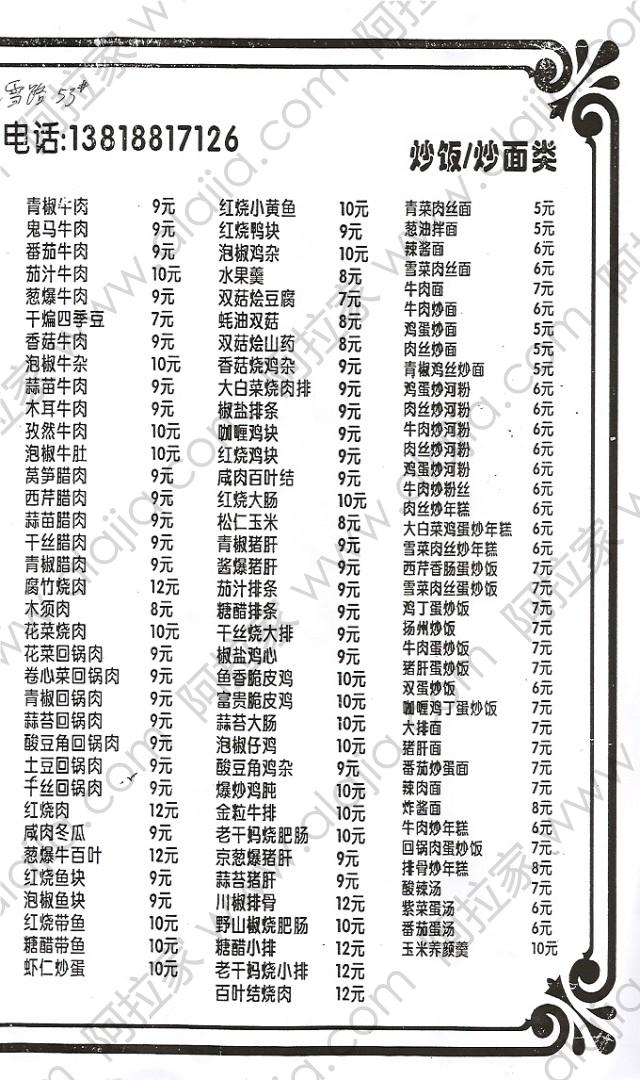 雪路 53#
电话:13818817126
炒饭/炒面类
青椒牛肉 9元
鬼马牛肉 9元
番茄牛肉 9元
茄汁牛肉 10元
葱爆牛肉 9元
干煸四季豆 7元
香菇牛肉 9元
泡椒牛杂 10元
蒜苗牛肉 9元
木耳牛肉 9元
孜然牛肉 10元
泡椒牛肚 10元
莴笋腊肉 9元
西芹腊肉 9元
蒜苗腊肉 9元
干丝腊肉 9元
青椒腊肉 9元
腐竹烧肉 12元
木须肉 8元
花菜烧肉 10元
花菜回锅肉 9元
卷心菜回锅肉 9元
青椒回锅肉 9元
蒜苔回锅肉 9元
酸豆角回锅肉 9元
土豆回锅肉 9元
干丝回锅肉 9元
红烧肉 12元
咸肉冬瓜 9元
葱爆牛百叶 12元
红烧鱼块 9元
泡椒鱼块 9元
红烧带鱼 10元
糖醋带鱼 10元
虾仁炒蛋 10元
红烧小黄鱼 10元
红烧鸭块 9元
泡椒鸡杂 10元
水果羹 8元
双菇烩豆腐 7元
蚝油双菇 8元
双菇烩山药 8元
香菇烧鸡杂 9元
大白菜烧肉排 9元
椒盐排条 9元
咖喱鸡块 9元
红烧鸡块 9元
咸肉百叶结 9元
红烧大肠 10元
松仁玉米 8元
青椒猪肝 9元
酱爆猪肝 9元
茄汁排条 9元
糖醋排条 9元
干丝烧大排 9元
椒盐鸡心 9元
鱼香脆皮鸡 10元
富贵脆皮鸡 10元
蒜苔大肠 10元
泡椒仔鸡 10元
酸豆角鸡杂 9元
爆炒鸡肫 10元
金粒牛排 10元
老干妈烧肥肠 10元
京葱爆猪肝 9元
蒜苔猪肝 9元
川椒排骨 12元
野山椒烧肥肠 10元
糖醋小排 12元
老干妈烧小排 12元
百叶结烧肉 12元
青菜肉丝面 5元
葱油拌面 5元
辣酱面 6元
雪菜肉丝面 6元
牛肉面 7元
牛肉炒面 6元
鸡蛋炒面 5元
肉丝炒面 5元
青椒鸡丝炒面 5元
鸡蛋炒河粉 6元
肉丝炒河粉 6元
牛肉炒河粉 6元
肉丝炒河粉 6元
鸡蛋炒河粉 6元
牛肉炒粉丝 6元
肉丝炒年糕 6元
大白菜鸡蛋炒年糕 6元
雪菜肉丝炒年糕 6元
西芹香肠蛋炒饭 7元
雪菜肉丝蛋炒饭 7元
鸡丁蛋炒饭 7元
扬州炒饭 7元
牛肉蛋炒饭 7元
猪肝蛋炒饭 7元
双蛋炒饭 6元
咖喱鸡丁蛋炒饭 7元
大排面 7元
猪肝面 7元
番茄炒蛋面 7元
辣肉面 7元
炸酱面 8元
牛肉炒年糕 6元
回锅肉蛋炒饭 7元
排骨炒年糕 8元
酸辣汤 7元
紫菜蛋汤 6元
番茄蛋汤 6元
玉米养颜羹 10元
阿拉家 www.alajia.com